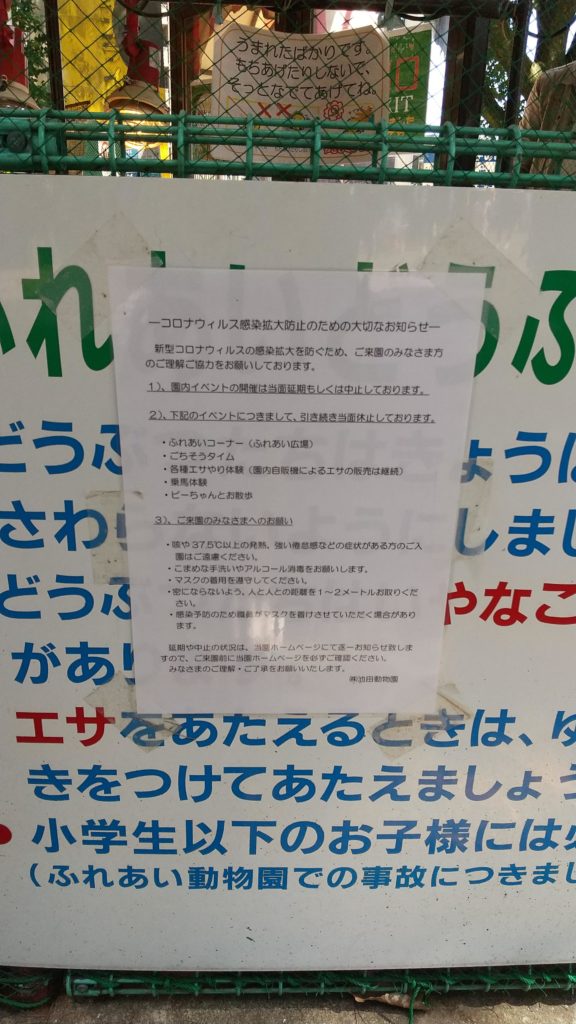 うまれたばかりです。
もちあげたりしないで、
そっとなでてあげてね。
ふれ
うふ
―コロナウィルス感染拡大防止のための大切なお知らせ―
新型コロナウィルスの感染拡大を防ぐため、ご来園のみなさま方
のご理解ご協力をお願いしております。
1）、園内イベントの開催は当面延期もしくは中止しております。
2）、下記のイベントにつきまして、引き続き当面休止しております。
・ふれあいコーナー（ふれあい広場）
・ごちそうタイム
・各種エサやり体験（園内自販機によるエサの販売は継続）
・乗馬体験
・ピーちゃんとお散歩
3）、ご来園のみなさまへのお願い
・咳や37.5℃以上の発熱、強い倦怠感などの症状がある方のご入
園はご遠慮ください。
・こまめな手洗いやアルコール消毒をお願いします。
・マスクの着用を遵守してください。
・密にならないよう、人と人との距離を１～２メートルお取りくだ
さい。
・感染予防のため職員がマスクを着けさせていただく場合があり
ます。
延期や中止の状況は、当園ホームページにて逐一お知らせ致しま
すので、ご来園前に当園ホームページを必ずご確認ください。
みなさまのご理解・ご了承をお願いいたします。
㈱池田動物園
どうぶ ょうは
さわら しまし
どうぶ やなこ
があり
エサをあたえるときは、ゆ
きをつけてあたえましょう
小学生以下のお子様には必
（ふれあい動物園での事故につきまし